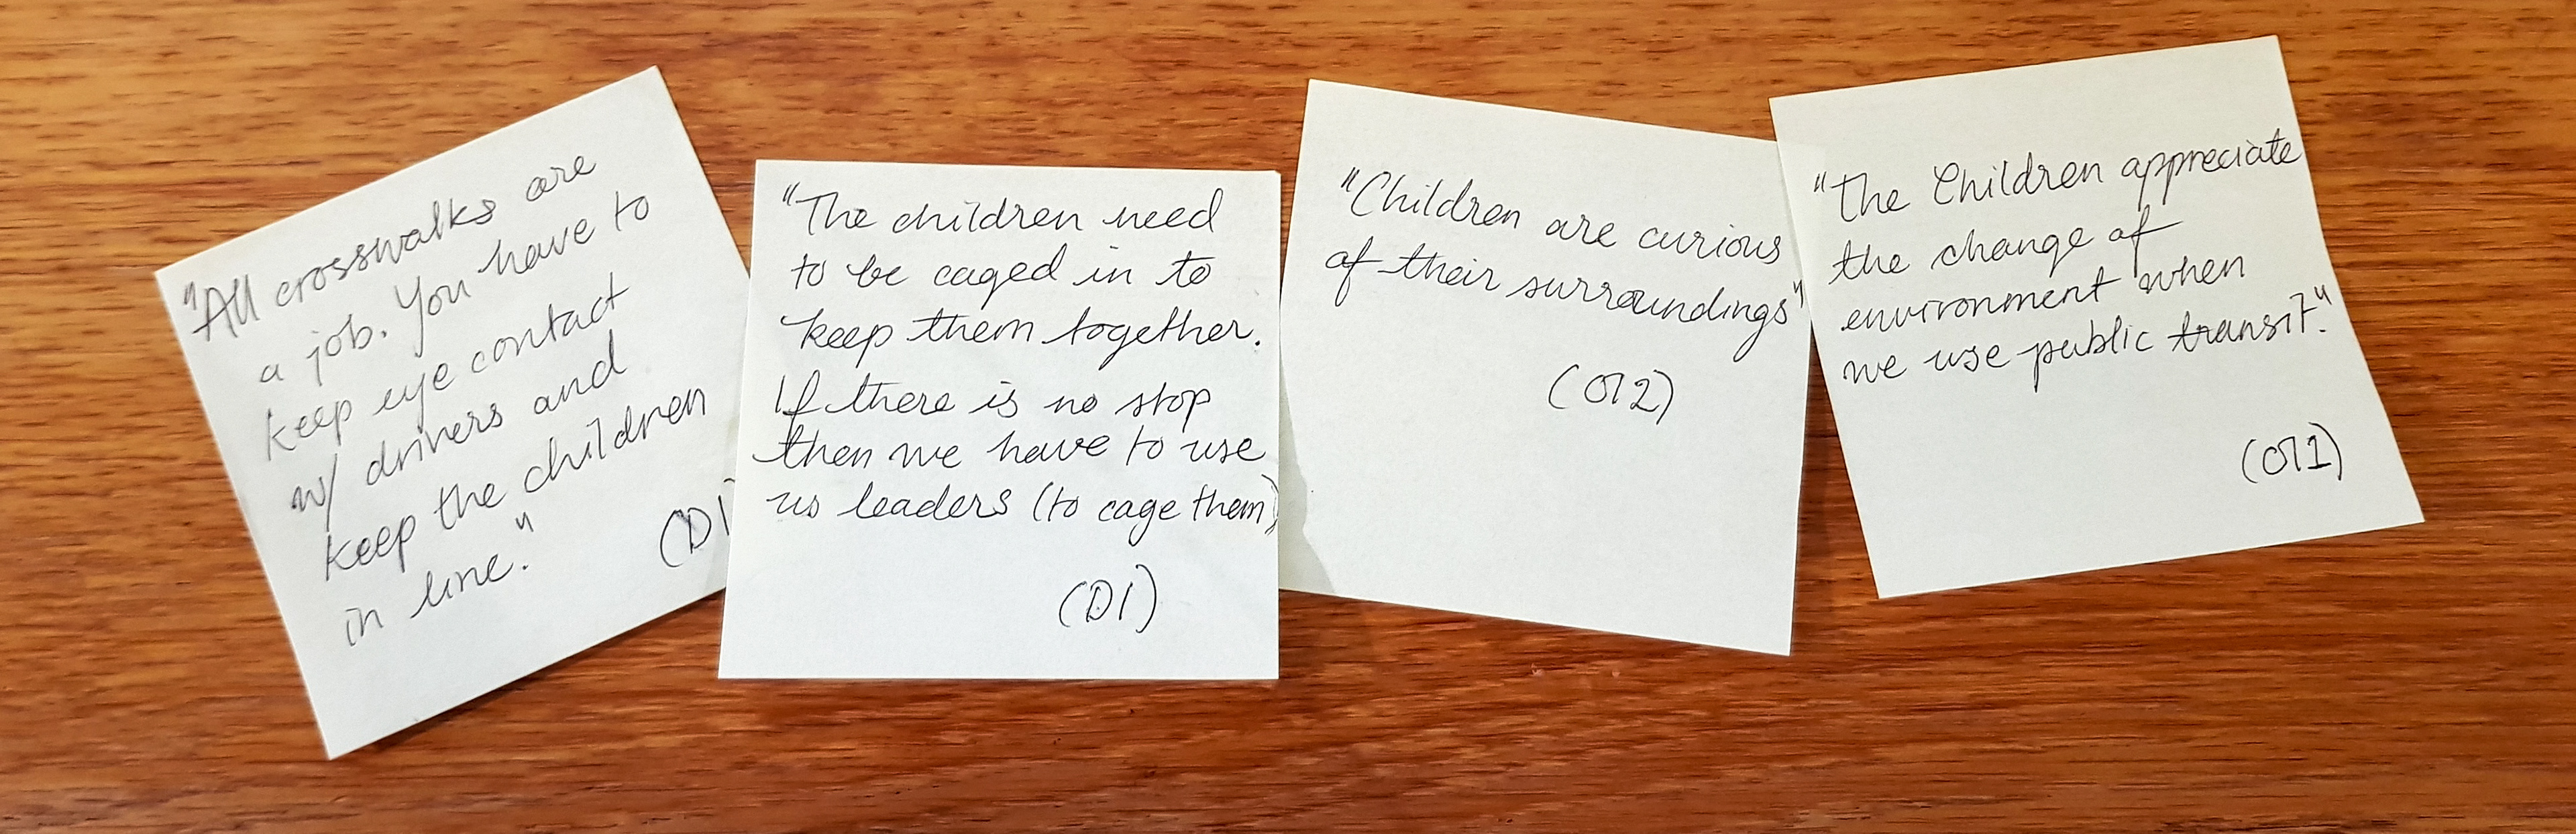 "All crosswalks are
a job. You have to
keep eye contact
w/ drivers and
keep the children
in line."
(D1
"The children need
to be caged in to
keep them together.
If there is no stop
then we have to use
us leaders (to cage them)
(D1)
"Children are curious
of their surroundings"
(OT2)
"The Children appreciate
the change of
environment when
we use public transit."
(OT1)